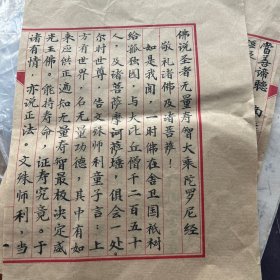 当善谛听
佛说圣者无量寿智大乘陀罗尼经
敬礼诸佛及诸菩萨！
如是我闻，一时佛在舍卫国祇树
给孤独园，与大比丘僧千二百五十
人，及诸菩萨摩诃萨，俱会一处。
尔时世尊，告文殊师利童子言：上
方有世界，名无量功德，其中有如
来应供正遍知无量寿智最极决定威
光王佛。能持寿命，证寿究竟。于
诸有情，亦说正法。文殊师利，当